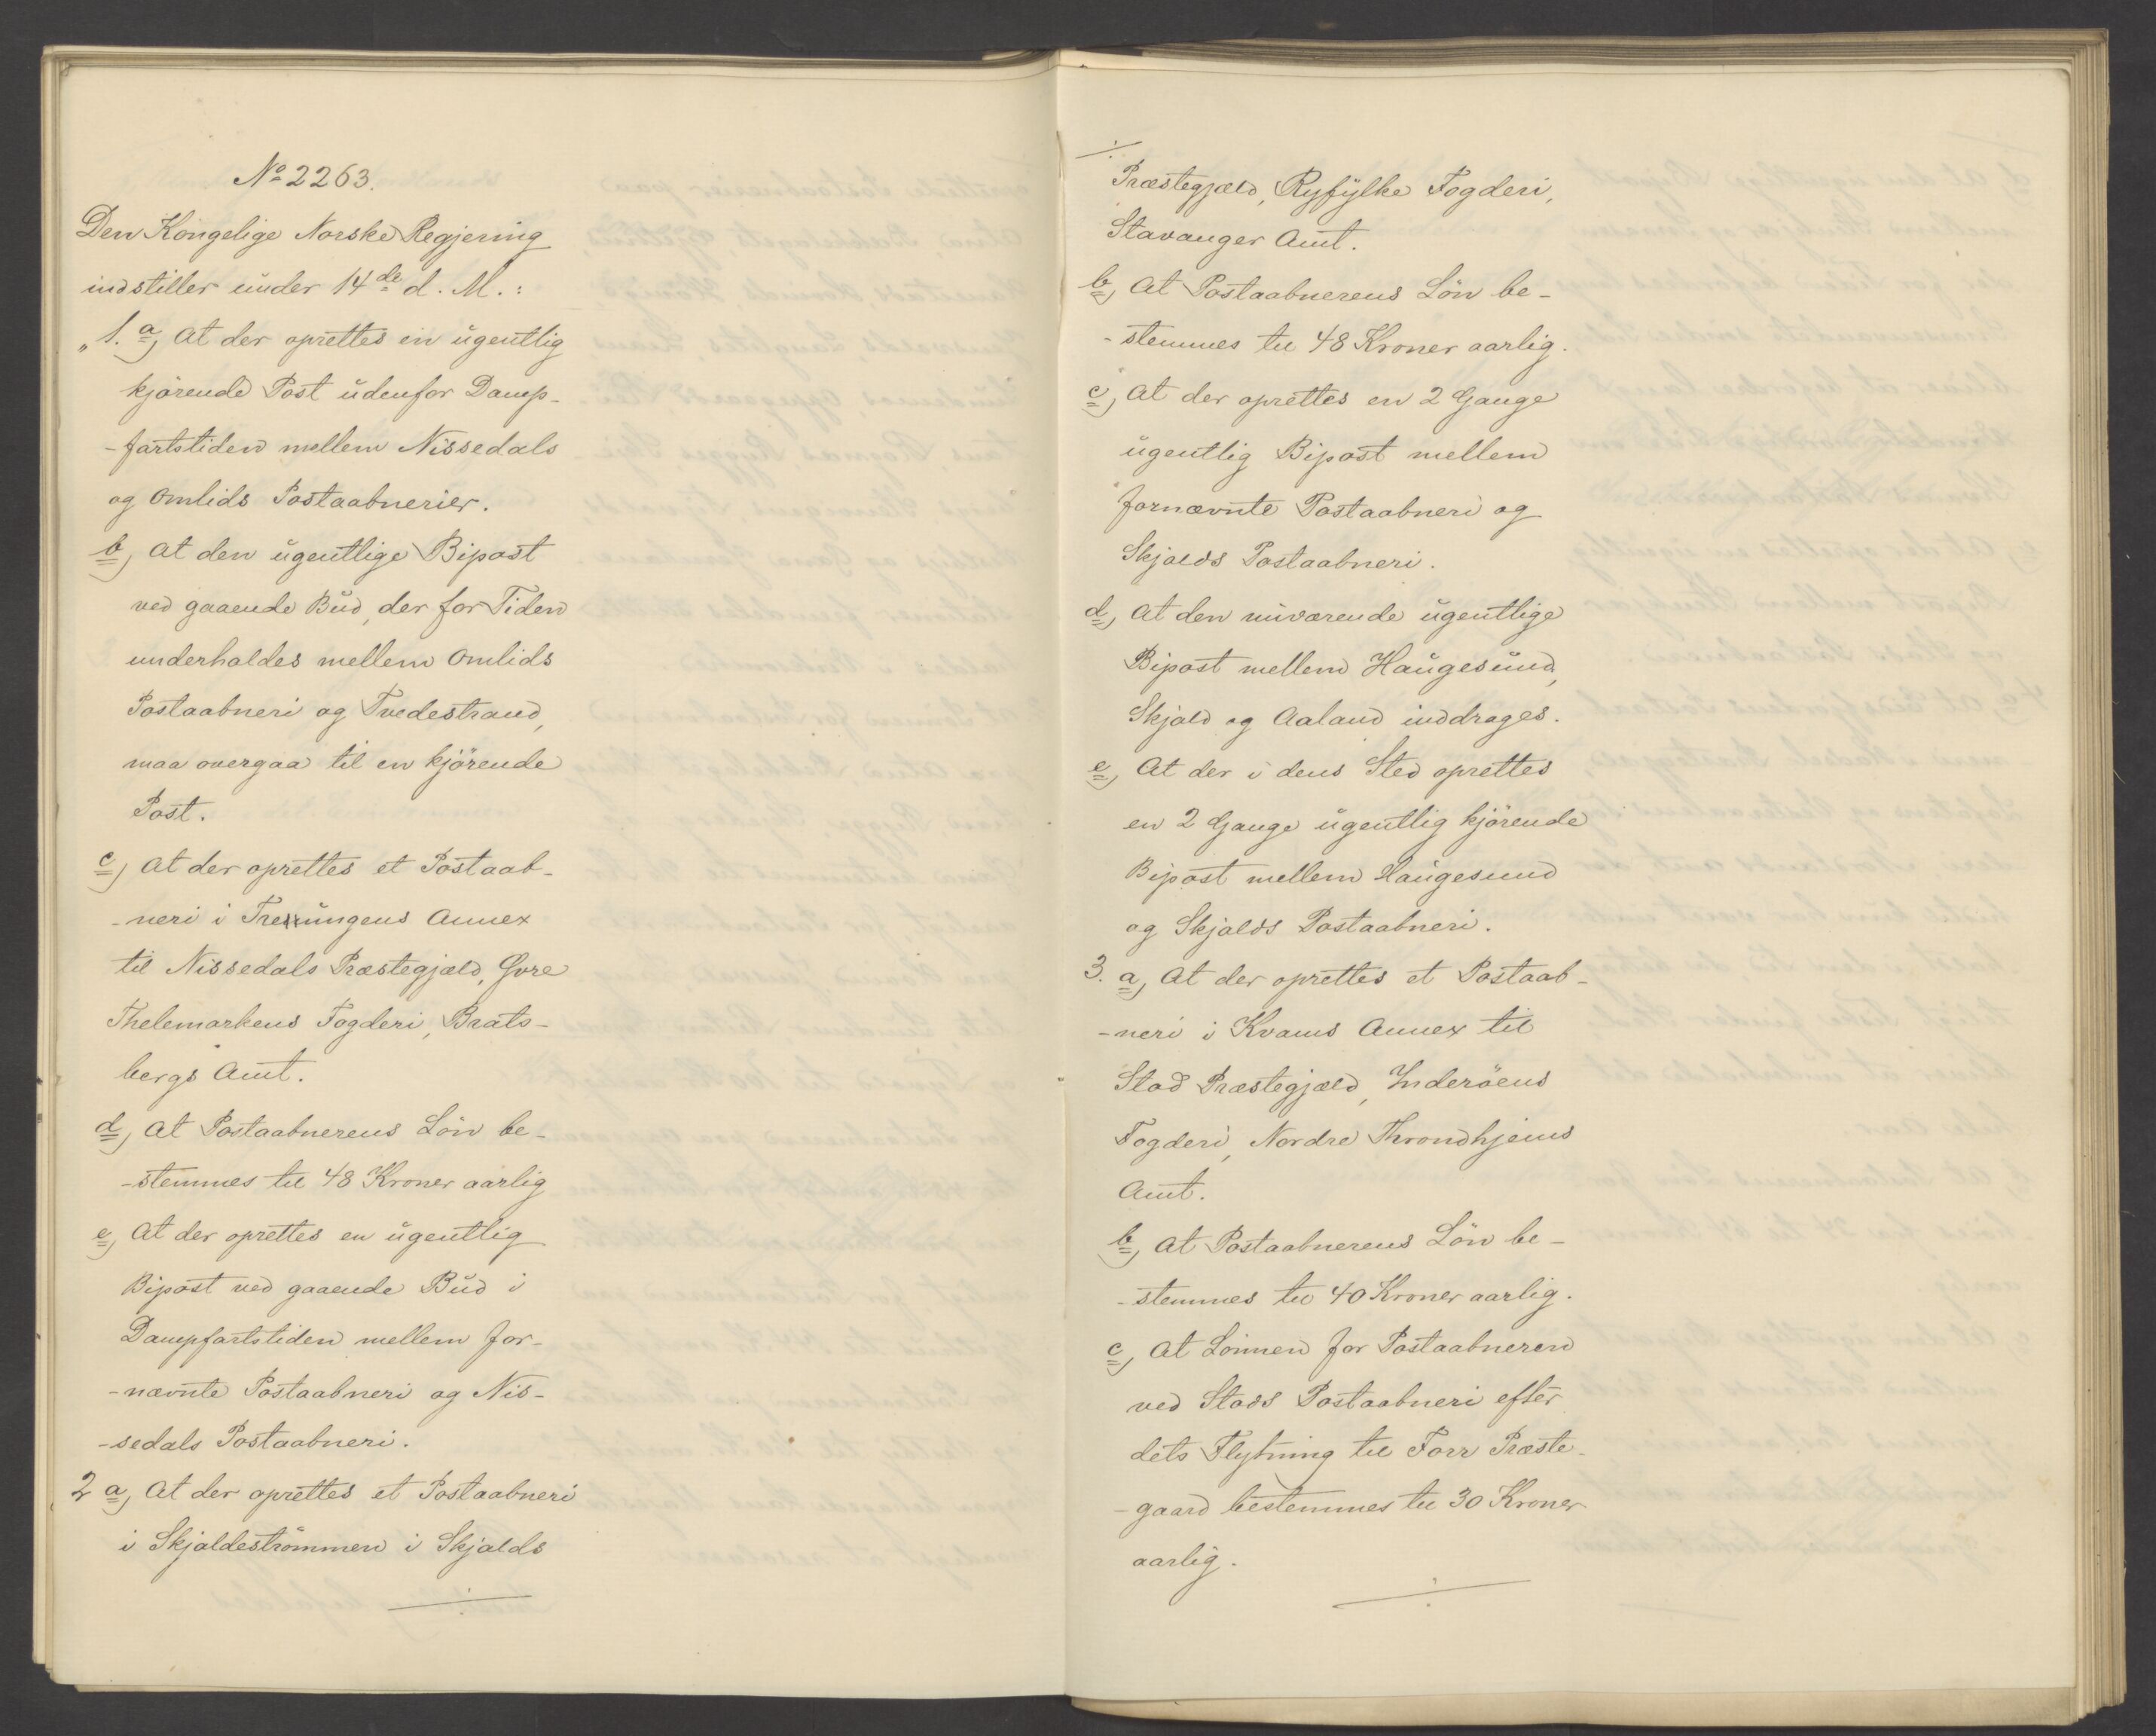 No 2263.
Den Kongelige Norske Regjering
indstiller under 14de d. M.:
"1. a, At der oprettes en ugentlig
kjörende Post udenfor Damp-
-fartstiden mellem Nissedals
og Omlids Postaabnerier.
b, At den ugentlige Bipost
ved gaaende Bud, der for Tiden
underholdes mellem Omlids
Postaabneri og Tvedestrand,
maa overgaa til en kjörende
Post.
c, At der oprettes et Postaab-
-neri i Treungens Annex
til Nissedals Præstegjæld, Övre
Thelemarkens Fogderi, Brats-
bergs Amt.
d, At Postaabnerens Lön be-
-stemmes til 48 Kroner aarlig
e, At der oprettes en ugentlig
Bipost ved gaaende Bud i
Dampfartstiden mellem for-
-nævnte Postaabneri og Nis-
-sedals Postaabneri.
2 a, At der oprettes et Postaabneri
i Skjoldeströmmen i Skjolds
./.
./.
Præstegjæld, Ryfylke Fogderi,
Stavanger Amt.
b, At Postaabnerens Lön be-
-stemmes til 48 Kroner aarlig.
c, At der oprettes en 2 Gange
ugentlig Bipost mellem
fornævnte Postaabneri og
Skjolds Postaabneri.
d, At den nuværende ugentlige
Bipost mellem Haugesund,
Skjold og Aaland inddrages.
e, At der i dens Sted oprettes
en 2 Gange ugentlig kjörende
Bipost mellem Haugesund
og Skjolds Postaabneri.
3. a, At der oprettes et Postaab-
-neri i Kvams Annex til
Stod Præstegjæld, Inderöens
Fogderi, Nordre Throndhjems
Amt.
b, At Postaabnerens Lön be-
-stemmes til 40 Kroner aarlig.
c, At Lönnen for Postaabneren
ved Stods Postaabneri efter
dets Flytning til Forr Præste-
-gaard bestemmes til 30 Kroner
aarlig.
./.